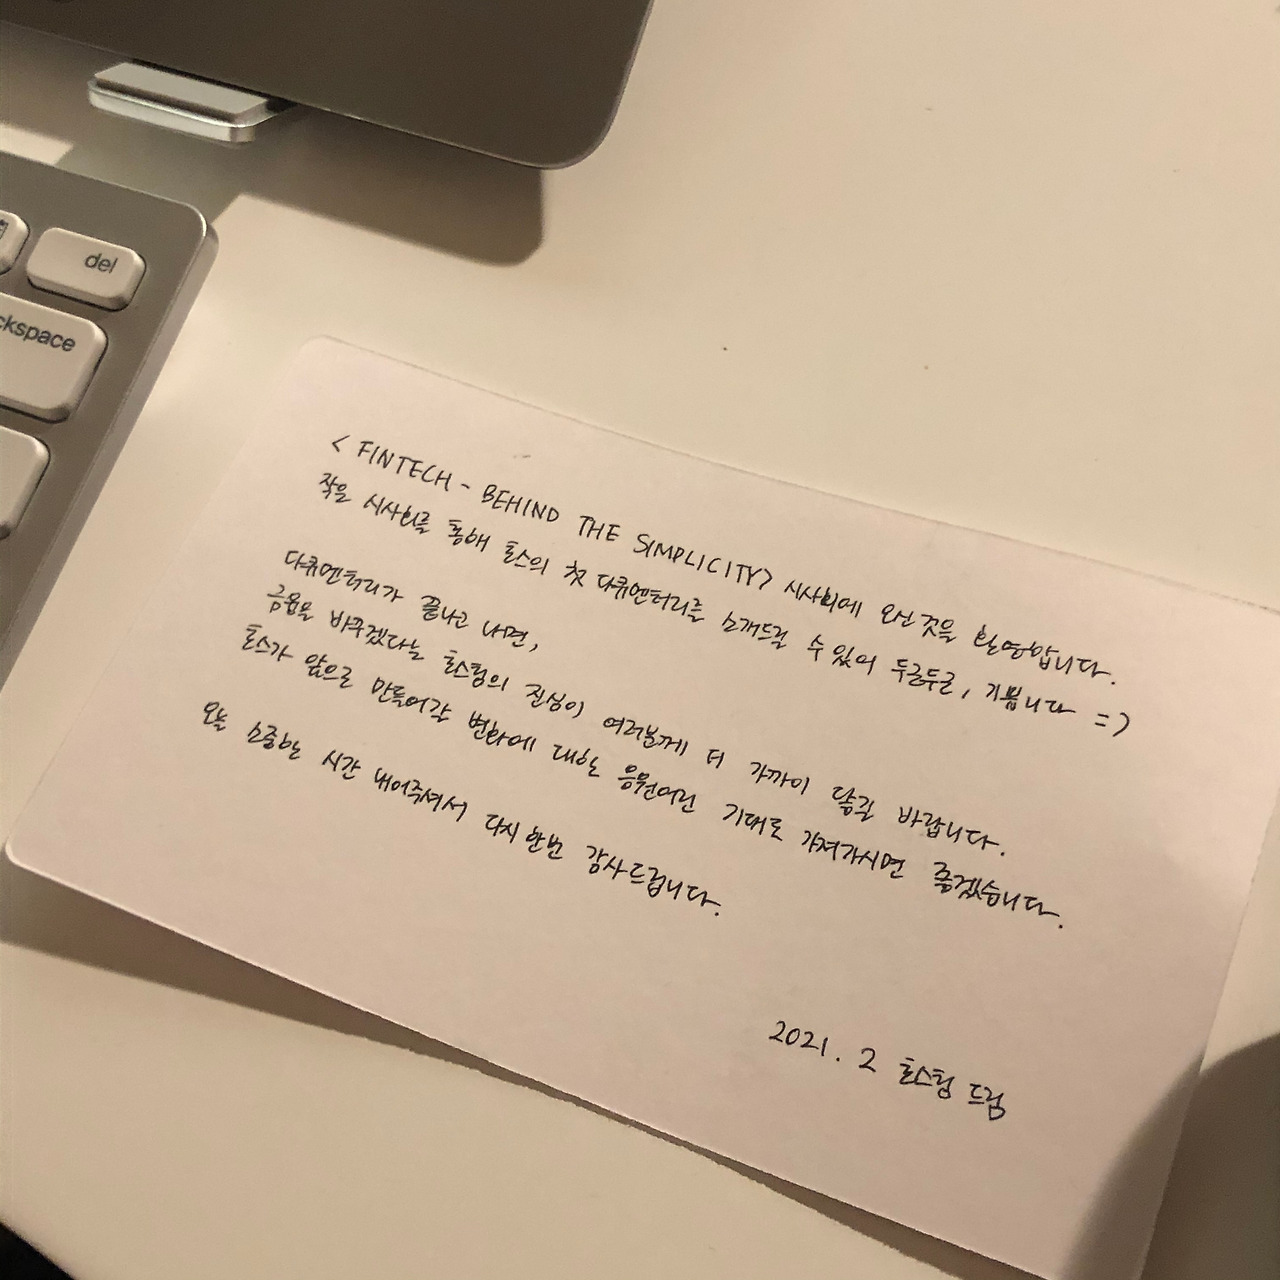 del
ckspace
< FINTECH - BEHIND THE SIMPLICITY> 시사회에 오신것을 환영합니다.
작은 시사회를 통해 토스의 첫 다큐멘터리를 소개드릴 수 있어 두근두근, 기쁩니다 =)
다큐멘터리가 끝나고 나면,
금융을 바꾸겠다는 토스팀의 진심이 여러분께 더 가까이 닿길 바랍니다.
토스가 앞으로 만들어갈 변화에 대한 응원어린 기대도 가져가시면 좋겠습니다.
오늘 소중한 시간 내어주셔서 다시 한번 감사드립니다.
2021. 2 토스팀 드림